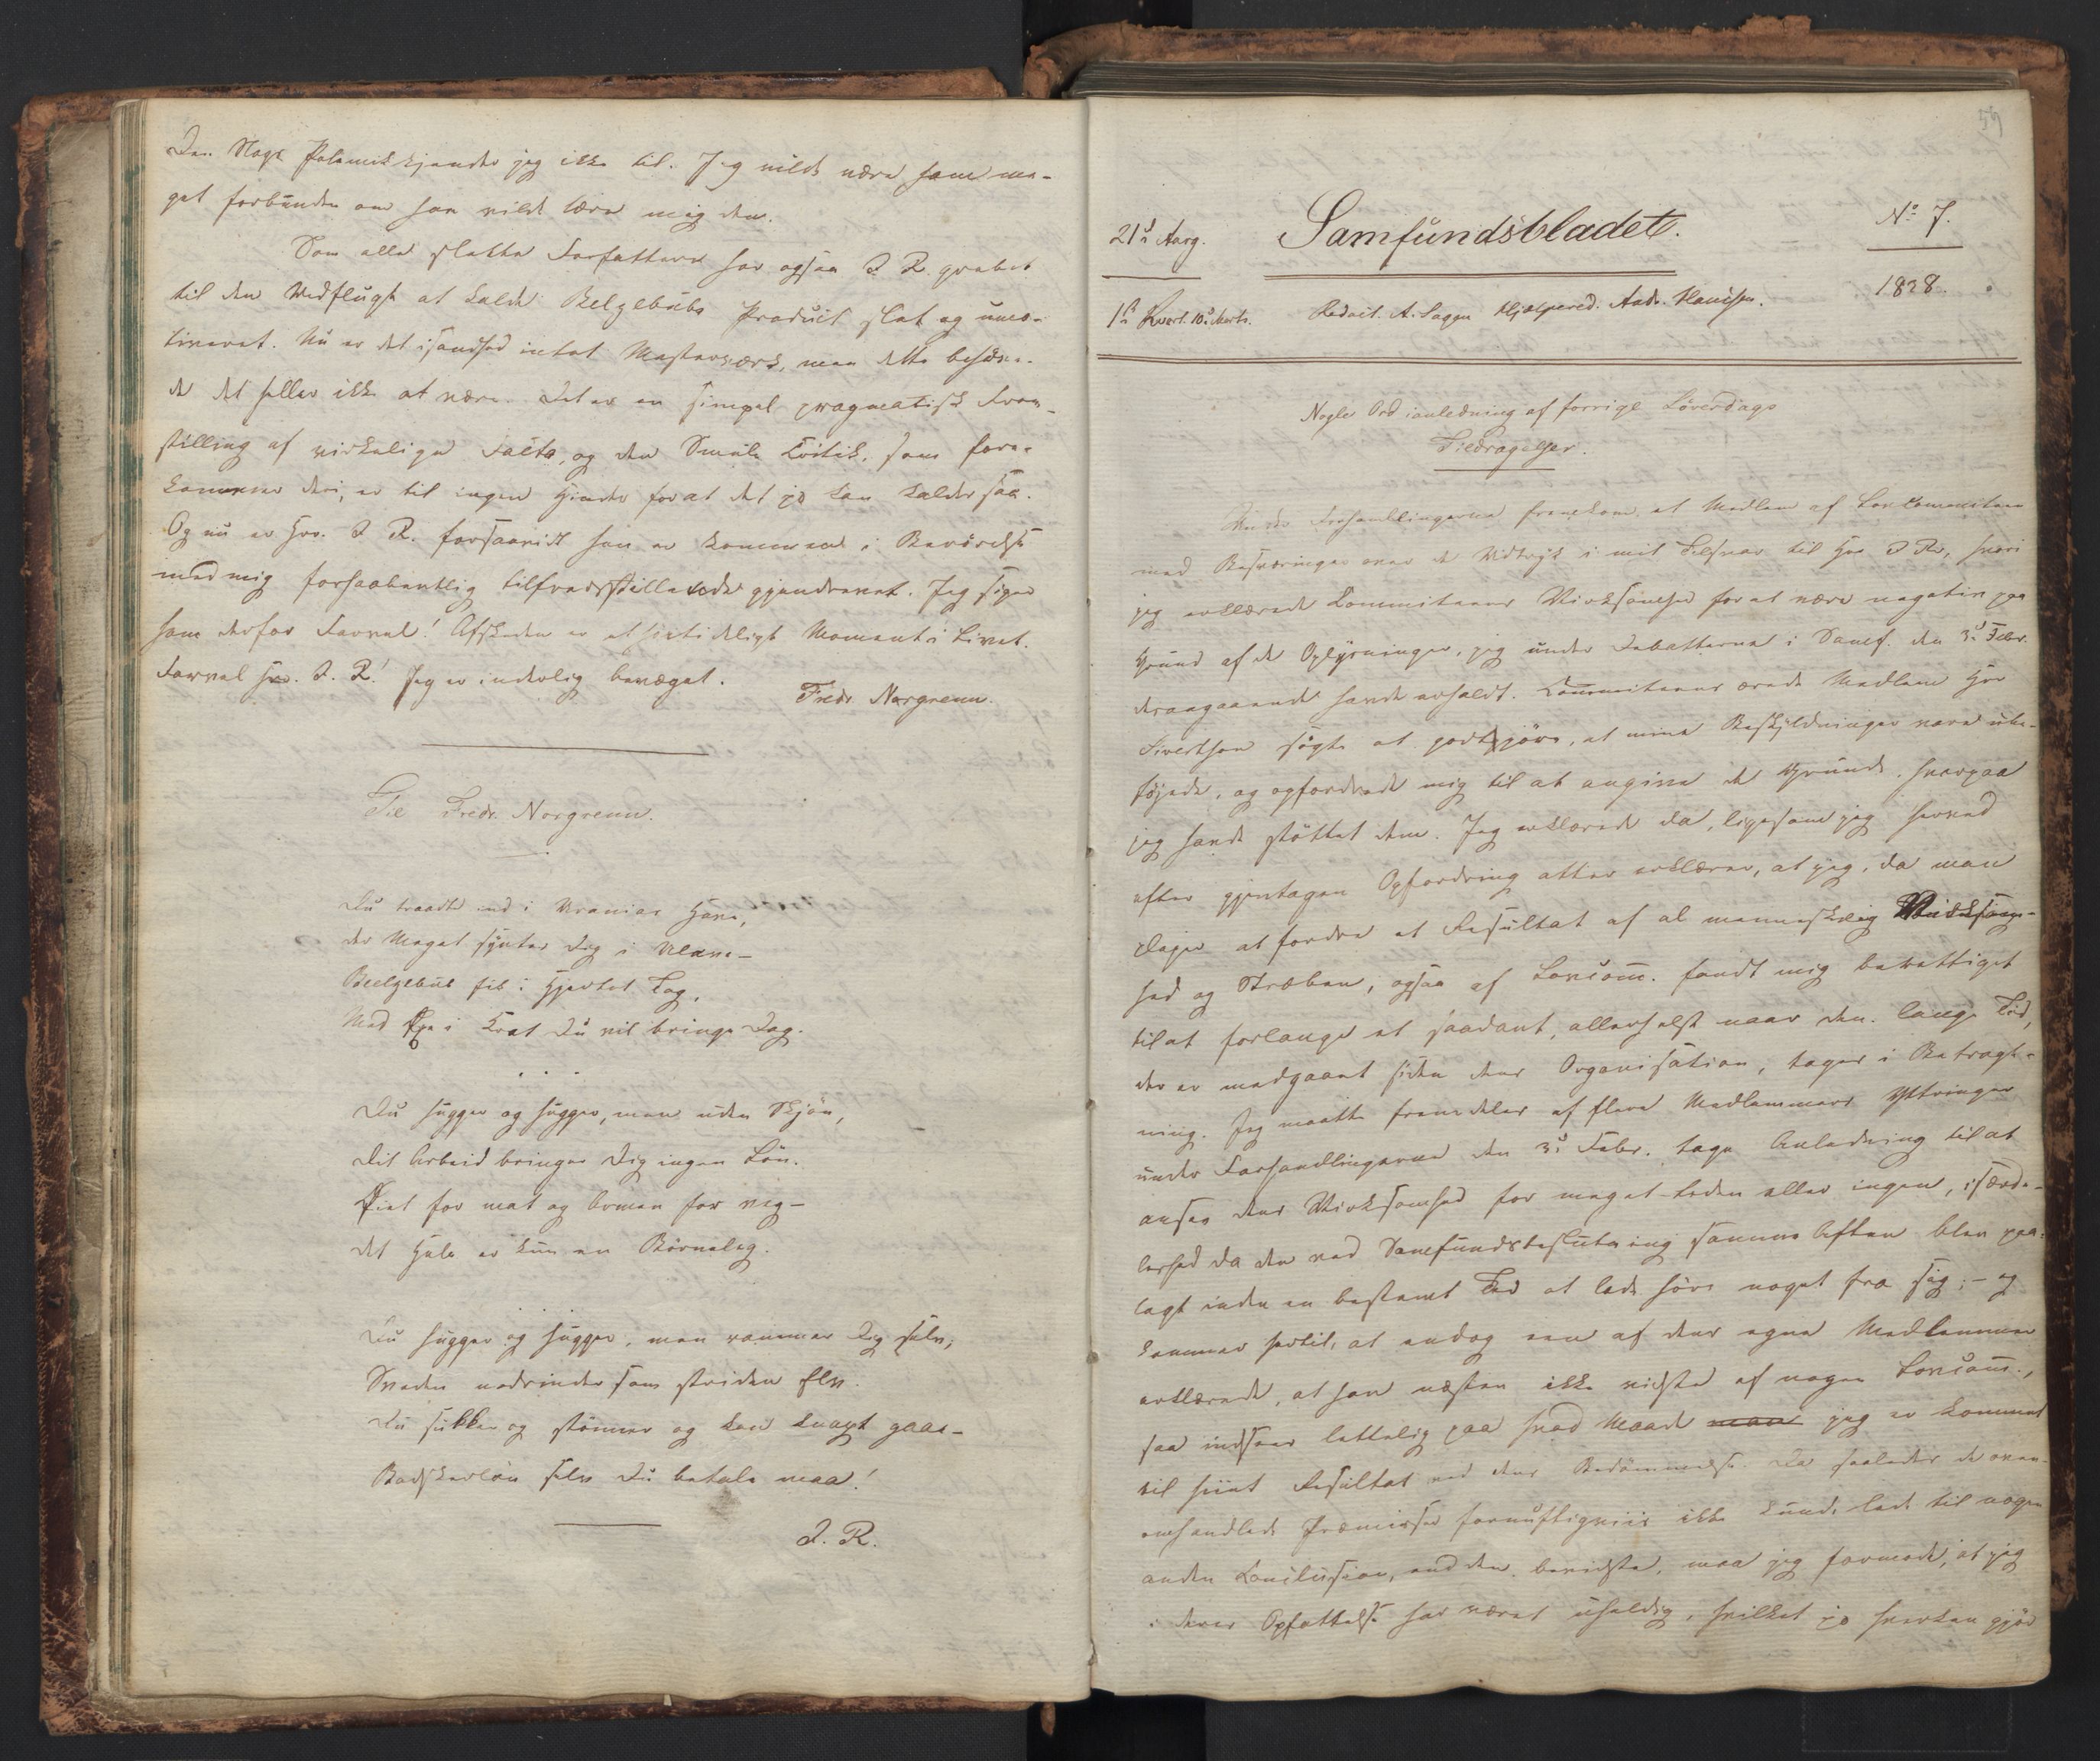 Den Slags Polemik kjender jeg ikke til. Jeg vilde være ham me-
get forbunden om han vilde lære mig den.
Som alle slette Forfattere har ogsaa J. R. grebet
til den Udflugt at kalde Belzebubs Produict slet og umo-
tiveret. Nu er det isandhed intet Mesterværk, men dette behøve-
de det heller ikke at være. Det er en simpel pragmatisk Frem-
stilling af virkelige Facta, og den Smule Critik, som fore-
kommer deri, er til ingen Hinder for at det jo kan kaldes saa.
Og nu er Hrr. J. R. forsaavidt han er kommen i Berörelse
med mig forhaabentlig tilfredsstillende gjendrevet. Jeg siger
ham derfor Farvel! Afskeden er et höitideligt Moment i Livet.
Farvel Hr. J. R.! Jeg er inderlig bevæget.
Fredr. Norgrenn.
Til Fredr. Norgrenn.
Du traadte ind i Uranias Have,
der Meget syntes Dig i Mave-
Beelzebub fik i Hjertet Tag,
Med Öxe i Krat Du vil bringe Dag.
Du hugger og hugger, men uden Skjön,
Dit Arbeid bringer Dig ingen Lön.
Öiet for mat og Armen for veg-
det Hele er kun en Börneleg.
Du hugger og hugger, men rammer Dig selv,
Sveden nedrinder som striden Elv.
Du sukker og stönner og kan knapt gaae-
Badskerlön selv Du betale maa!
J. R.
59
21de Aarg.
Samfundsbladet.
No 7.
1ste Kvart. 10de Marts.
Redact. A. Sagen Hjælpered. Andr. Hansen.
1838.
Nogle Ord ianledning af forrige Löverdags
Tildragelser.
Under Forhandlingerne fremkom et Medlem af Lovcommiteen
med Besværinger over et Udtryk i mit Tilsvar til Hrr J. R., hvori
jeg erklærede Committeens Virksomhed for at være negativ paa
Grund af de Oplysninger, jeg under Debatterne i Samf. den 3de Febr.
derangaaende havde erholdt. Committeens ærede Medlem Hrr
Sivertson sögte at godtgjöre, at mine Beskyldninger vare ube-
föiede, og opfordrede mig til at angive de Grunde, hvorpaa
jeg havde stöttet dem. Jeg erklærede da, ligesom jeg herved
efter gjentagen Opfordring atter erklærer, at jeg, da man
pleier at fordre et Resultat af al menneskelig Virksom-
hed og Stræben, ogsaa af Lovcom. fandt mig berettiget
til at forlange et saadant, allerhelst naar den lange Tid,
der er medgaaet siden dens Organisation, tages i Betragt-
ning. Jeg maatte fremdeles af flere Medlemmers Yttringer
under Forhandlingerne den 3de Febr. tage Anledning til at
ansee dens Virksomhed for meget liden eller ingen, isærde-
leshed da den ved Samfundsbeslutning samme Aften blev paa-
lagt inden en bestemt Tid at lade höre noget fra sig; - og
kommer hertil, at endog een af dens egne Medlemmer
erklærede, at han næsten ikke vidste af nogen Lovcom.,
saa indsees lettelig paa hvad Maade man jeg er kommen
til hiint Resultat ved dens Bedömmelse. Da saaledes de oven-
omhandlede Præmisser fornuftigviis ikke kunde lede til nogen
anden Conclusion, end den bevidste, maa jeg formode, at jeg
i deres Opfattelse har været uheldig, hvilket jo hverken gjör